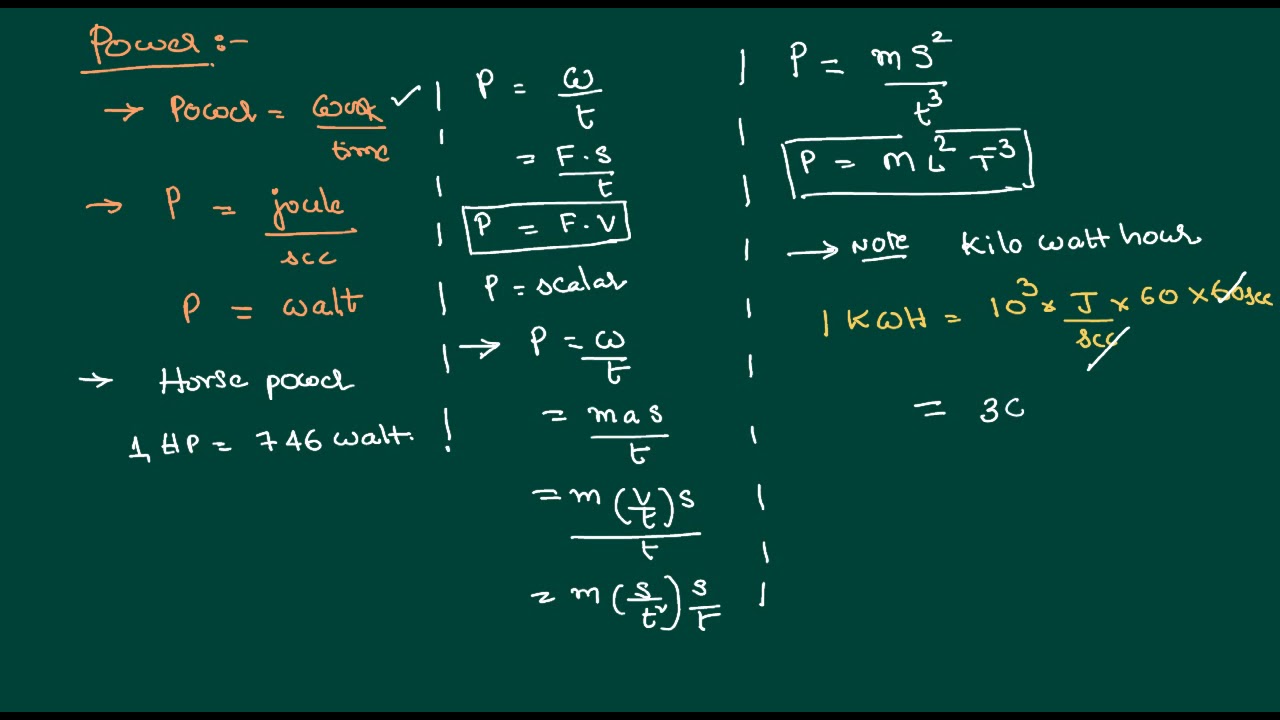 Power :-
→ Power = work / time ✓
→ P = joule / sec
P = watt
→ Horse power
1 HP = 746 watt.
P = W / t
= F·s / t
P = F·V
P = scalar
→ P = W / t
= mas / t
= m (V/t) s / t
= m (s/t²) s/t
P = m s² / t³
P = M L² T⁻³
→ NOTE Kilo watt hour
1 KWH = 10³ × J/sec × 60 × 60 sec
= 36